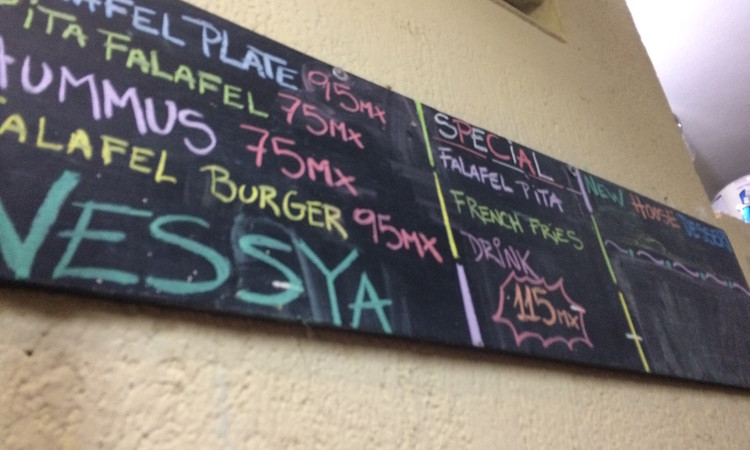 FALAFEL PLATE 95MX
PITA FALAFEL 75MX
HUMMUS 75MX
FALAFEL BURGER 95MX
NESSYA
SPECIAL
FALAFEL PITA
FRENCH FRIES
DRINK
115MX
NEW HOUSE